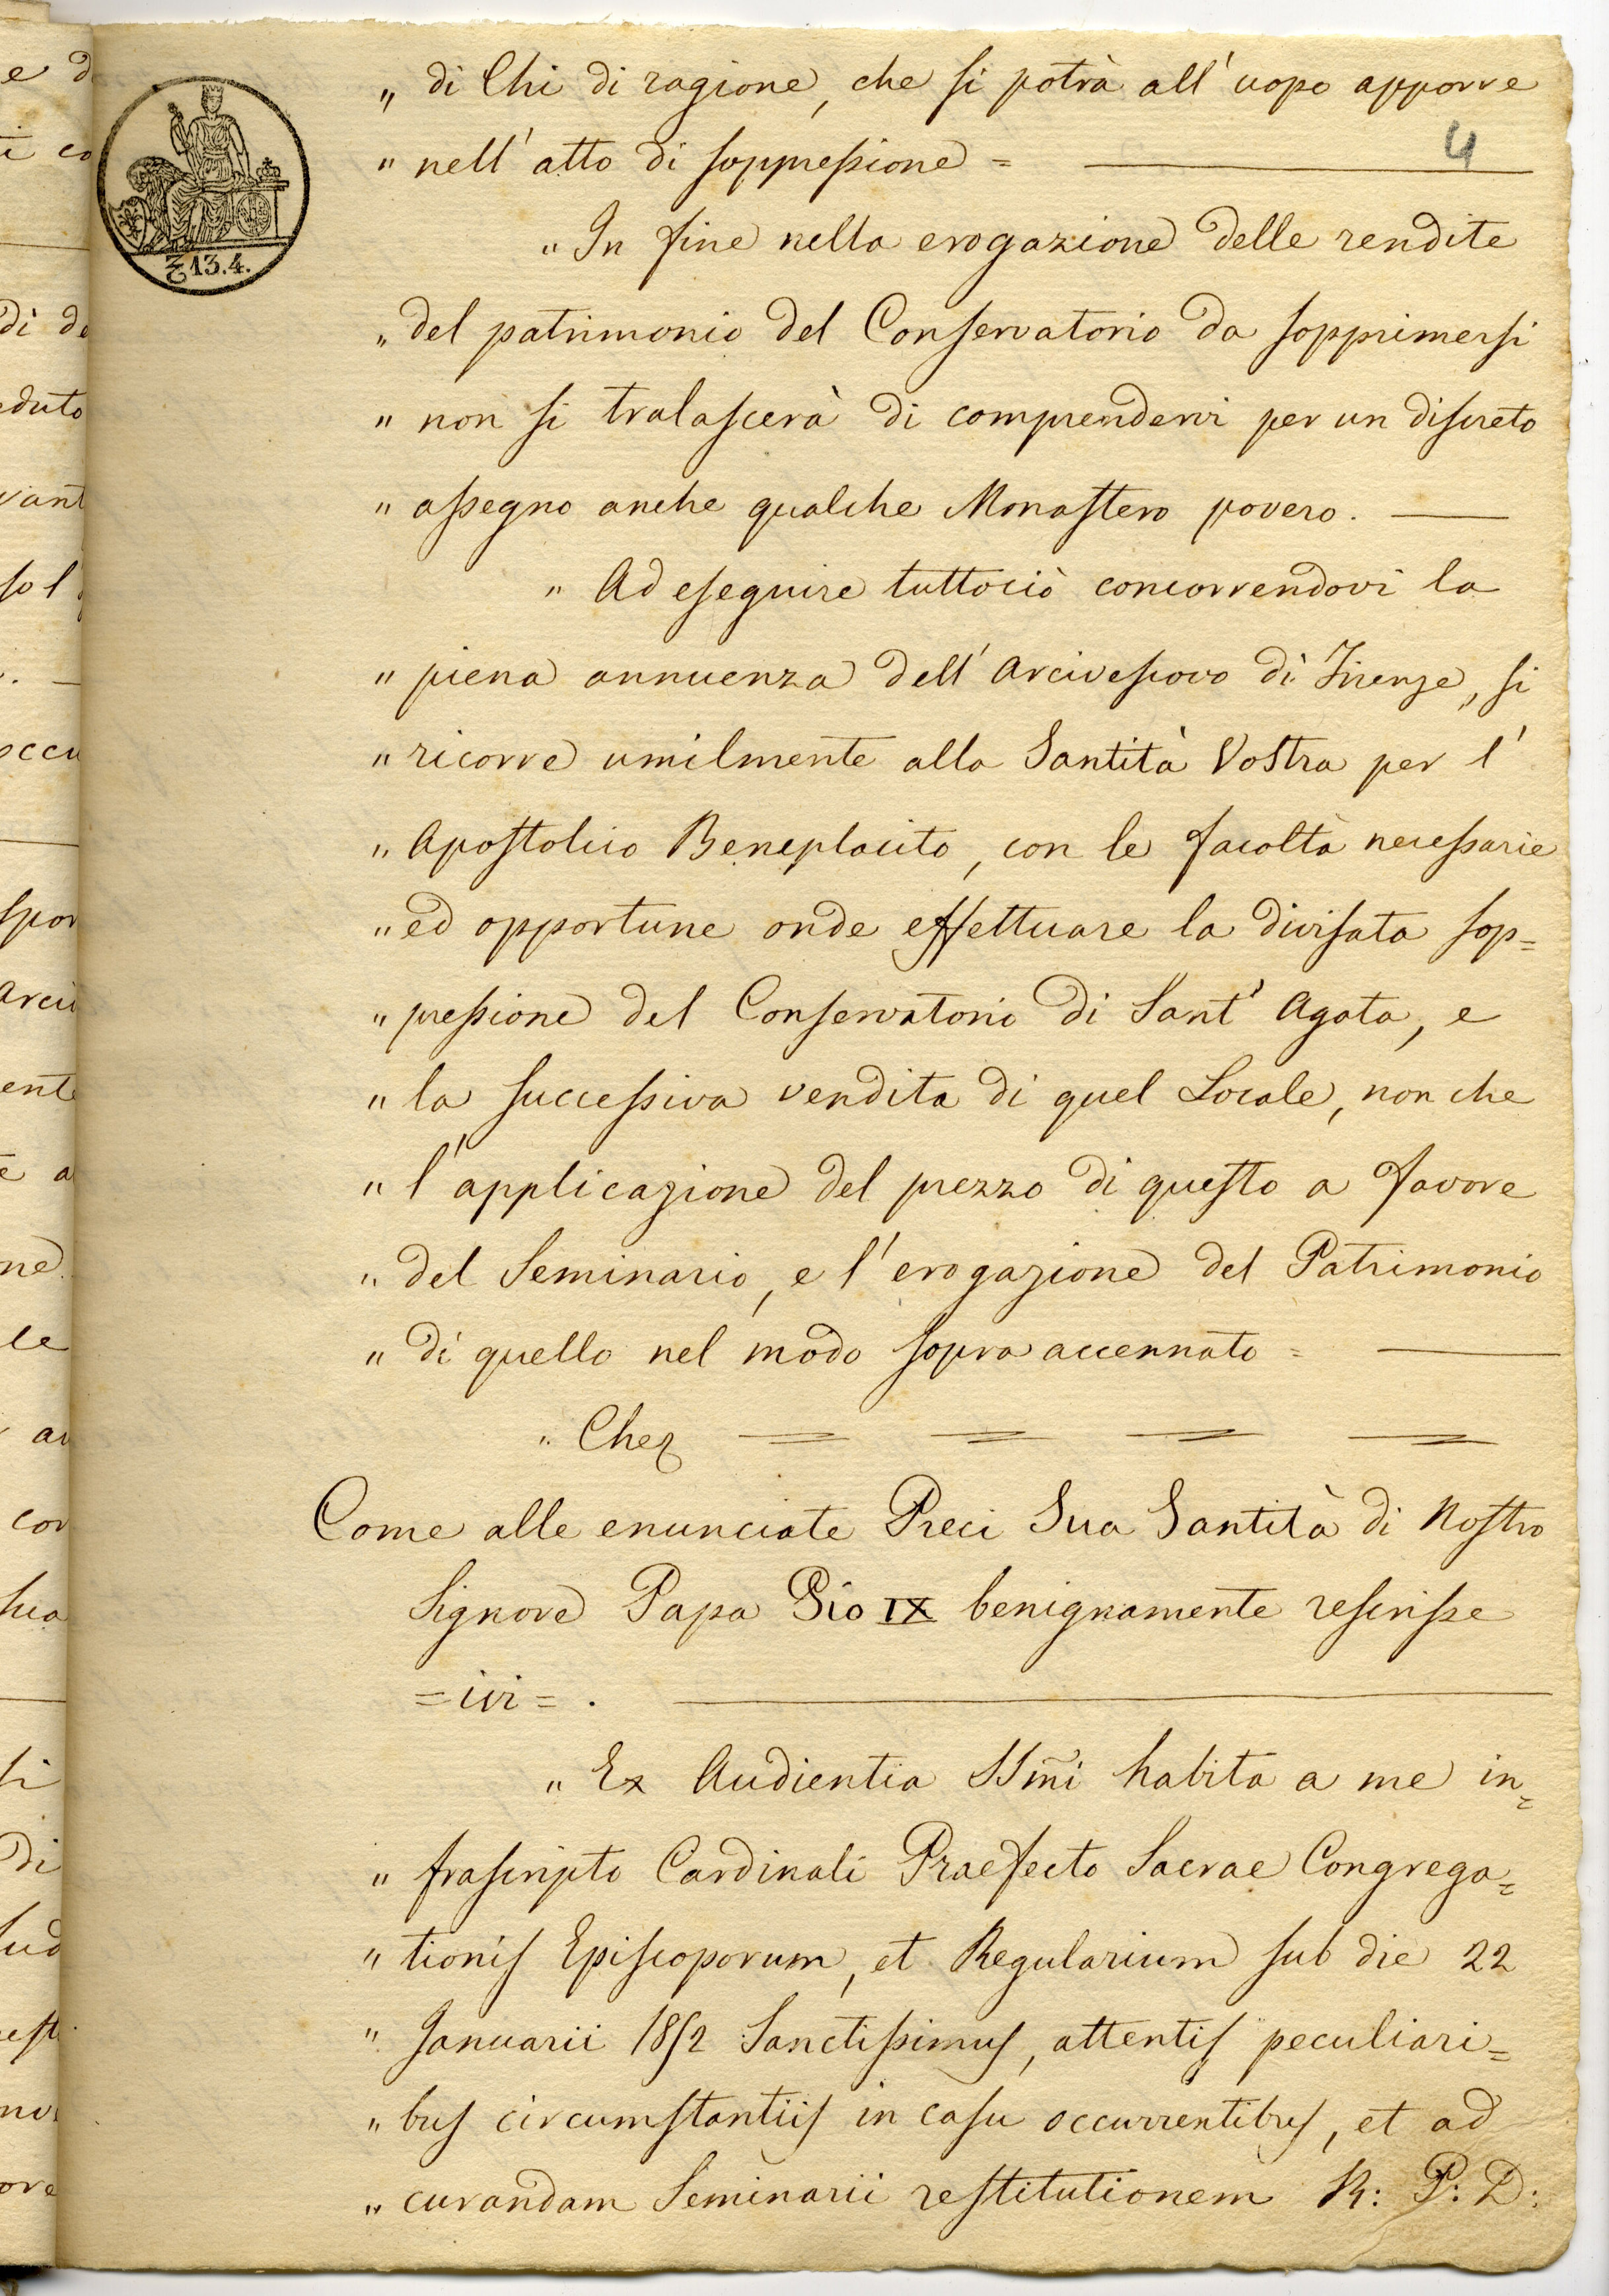 „ di Chi di ragione, che si potrà all'uopo apporre
4
„ nell'atto di soppressione =
„ In fine nella erogazione delle rendite
13.4.
„ del patrimonio del Conservatorio da sopprimersi
„ non si tralascerà di comprendervi per un discreto
„ assegno anche qualche Monastero povero.
„ Ad eseguire tuttociò concorrendovi la
„ piena annuenza dell'Arcivescovo di Firenze, si
„ ricorre umilmente alla Santità Vostra per l'
„ Apostolico Beneplacito, con le facoltà necessarie
„ ed opportune onde effettuare la divisata sop=
„ pressione del Conservatorio di Sant'Agata, e
„ la successiva vendita di quel Locale, non che
„ l'applicazione del prezzo di questo a favore
„ del Seminario, e l'erogazione del Patrimonio
„ di quello nel modo sopra accennato =
„ Che
Come alle enunciate Preci Sua Santità di Nostro
Signore Papa Pio IX benignamente rescrisse
= ivi = .
„ Ex Audientia SSm̃i habita a me in=
„ frascripto Cardinali Praefecto Sacrae Congrega=
„ tionis Episcoporum, et Regularium sub die 22
„ Januarii 1852 Sanctissimus, attentis peculiari=
„ bus circumstantiis in casu occurrentibus, et ad
„ curandam Seminarii restitutionem R: P: D: